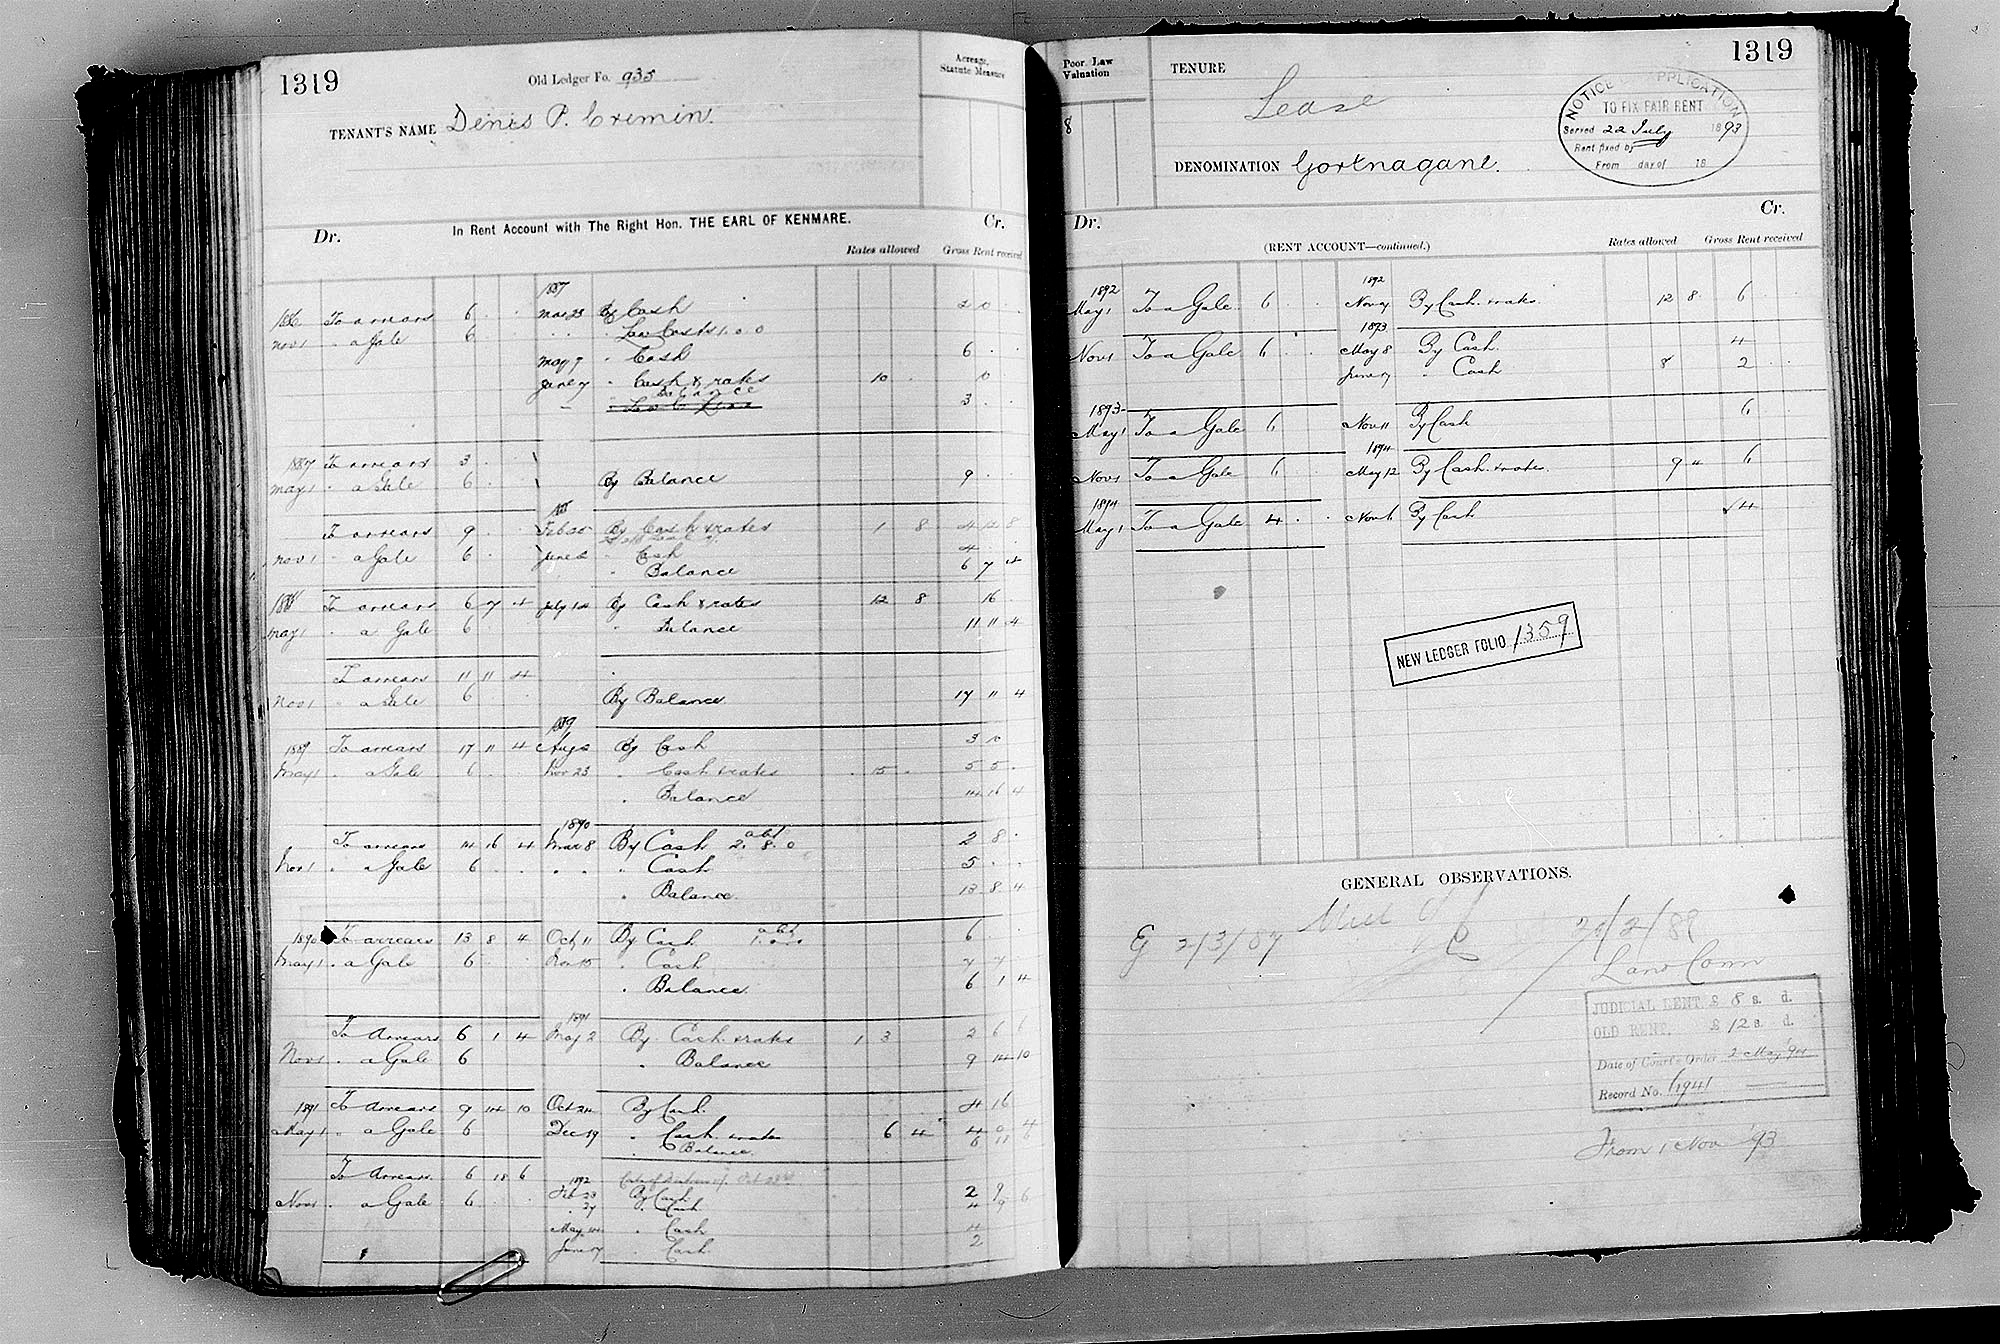 1319
Old Ledger Fo. 935
Acreage, Statute Measure
TENANT'S NAME Denis P. Cremin.
In Rent Account with The Right Hon. THE EARL OF KENMARE.
Dr. Cr.
Rates allowed Gross Rent received
1887
1886 To arrears 6 . . Mar 23 By Cash 2 0 .
Nov 1 " a Gale 6 . . " Law Costs 1.0.0
May 7 " Cash 6 . .
June 7 " Cash & rates 10 . 10
Balance 3 . .
1887 To arrears 3 . .
May 1 " a Gale 6 . . By Balance 9 . .
To arrears 9 . . Feb 25 By Cash & rates 1 8 4 12 8
Nov 1 " a Gale 6 . . June 2 " Cash 4
" Balance 6 7 4
1888 To arrears 6 7 4 July 14 By Cash & rates 12 8 16
May 1 " a Gale 6 " Balance 11 11 4
To arrears 11 11 4
Nov 1 " a Gale 6 By Balance 17 11 4
1889
1889 To arrears 17 11 4 Aug 2 By Cash 3 10
May 1 " a Gale 6 . . Nov 23 " Cash & rates 15 . 5 5 .
" Balance 14 16 4
1890
To arrears 14 16 4 Mar 8 By Cash abt 2. 8. 0 2 8 .
Nov 1 " a Gale 6 . . " " " Cash 5 . .
" Balance 13 8 4
1890 To arrears 13 8 4 Oct 11 By Cash abt 6 . .
May 1 " a Gale 6 Nov 15 " Cash 7 7
" Balance 6 1 4
1891
To Arrears 6 1 4 May 2 By Cash & rates 1 3 2 6 6
Nov 1 " a Gale 6 " Balance 9 14 10
1891 To Arrears 9 14 10 Oct 24 By Cash 4 16
May 1 " a Gale 6 Dec 19 " Cash & rates 6 4 4 0 4
" Balance 6 18 6
To Arrears 6 18 6 1892
Nov 1 " a Gale 6 Feb 23 By Cash 2 9 6
" 27 " Cash 4 9
May 14 " Cash 4
June 7 " Cash 2
Poor Law Valuation
8
TENURE Lease
1319
NOTICE OF APPLICATION
TO FIX FAIR RENT
Served 22 July 1893
Rent fixed by
From day of 18
DENOMINATION Gortnagane.
Dr. Cr.
(RENT ACCOUNT—continued.)
Rates allowed Gross Rent received
1892 1892
May 1 To a Gale 6 . . Nov 7 By Cash & rates 12 8 6 .
1893
Nov 1 To a Gale 6 . . May 8 By Cash 4
June 7 " Cash 8 2 . .
1893
May 1 To a Gale 6 Nov 11 By Cash 6
1894
Nov 1 To a Gale 6 . . May 12 By Cash & rates 9 4 6
1894
May 1 To a Gale 4 . . Nov 6 By Cash √4
NEW LEDGER FOLIO 1359
GENERAL OBSERVATIONS.
G 2/3/87
/2/88
Land Com
JUDICIAL RENT £ 8 s. d.
OLD RENT, £ 12 s. d.
Date of Court's Order 2 May '94
Record No. 6941
From 1 Nov '93